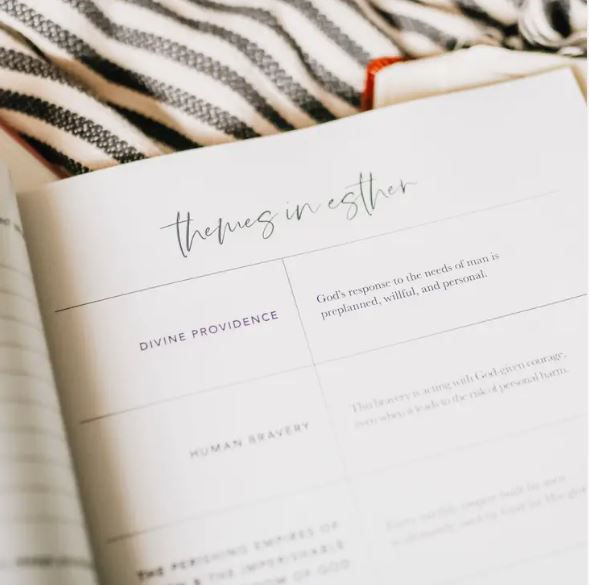 themes in esther
DIVINE PROVIDENCE
God's response to the needs of man is
preplanned, willful, and personal.
HUMAN BRAVERY
This bravery is acting with God-given courage,
even when it leads to the risk of personal harm.
THE PERISHING EMPIRES OF
& THE IMPERISHABLE
OF GOD